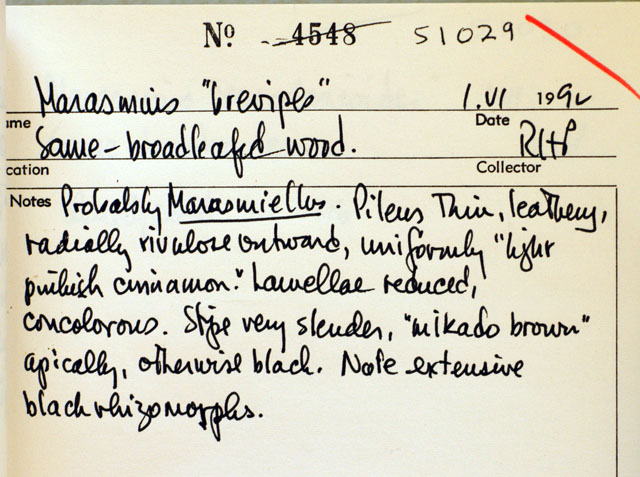 Nº 4548 51029
Marasmius "brevipes" 1.VI 1992
ame Date
Same - broadleafed wood. RHP
cation Collector
Notes Probably Marasmiellus. Pileus thin, leathery,
radially rivulose outward, uniformly "light
pinkish cinnamon." Lamellae reduced,
concolorous. Stipe very slender, "mikado brown"
apically, otherwise black. Note extensive
black rhizomorphs.